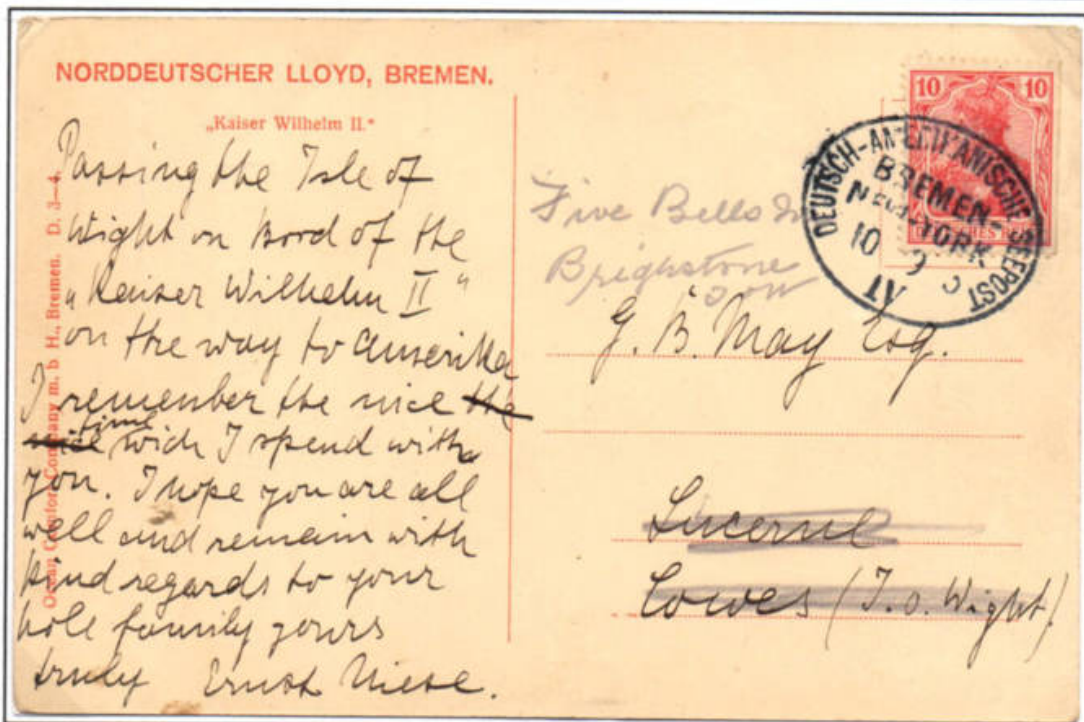 NORDDEUTSCHER LLOYD, BREMEN.
„Kaiser Wilhelm II.“
Passing the Isle of
Wight on bord of the
„Kaiser Wilhelm II“
on the way to Amerika
I remember the nice the
time wich I spend with
you. I hope you are all
well and remain with
kind regards to your
hole family yours
truly Ernst Niese.
Ocean Comfort Company m. b H., Bremen. D. 3—4.
10 10
DEUTSCH-AMERIKANISCHE SEEPOST
BREMEN-
NEW-YORK
10 9
Five Bells
Brighstone
IOW
G. B. May Esq.
Lucerne
Cowes (I. o. Wight).